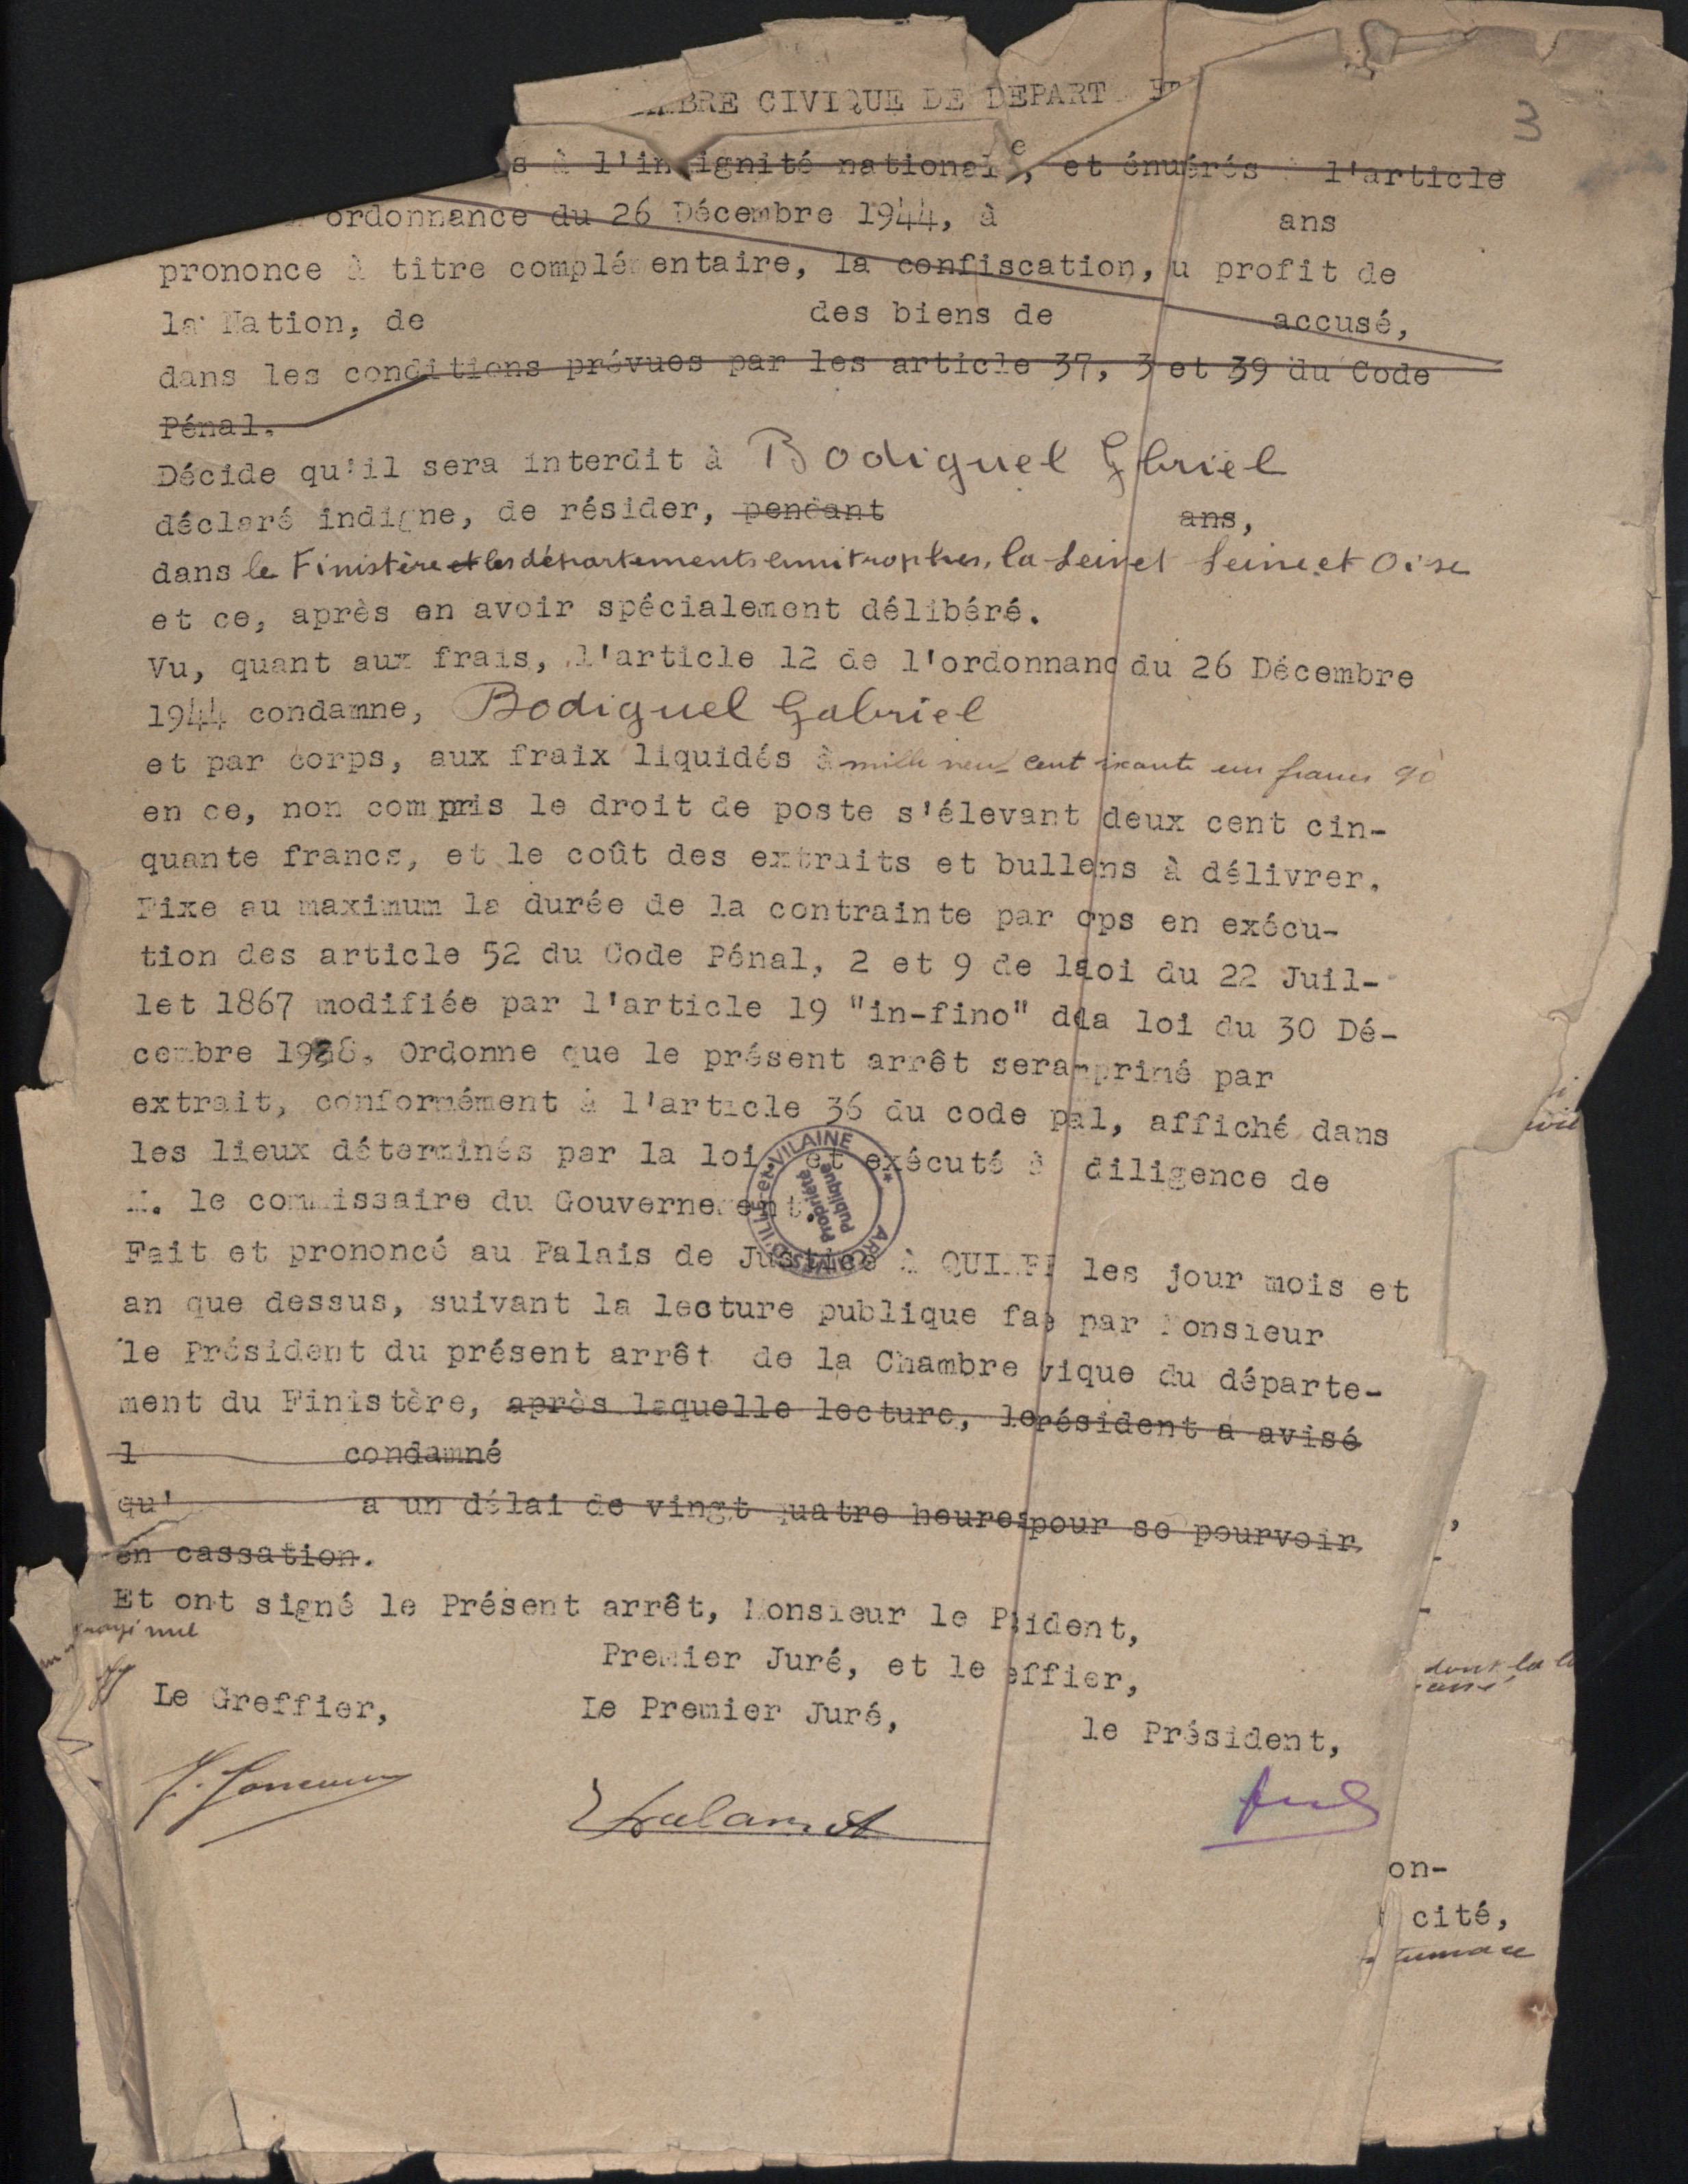 BRE CIVIQUE DE DEPART
3
s à l'indignité nationale, et énuérés à l'article
ordonnance du 26 Décembre 1944, à ans
prononce à titre complémentaire, la confiscation, u profit de
la Nation, de des biens de accusé,
dans les conditions prévues par les article 37, 3 et 39 du Code
Pénal.
Décide qu'il sera interdit à Bodiguel Gbriel
déclaré indigne, de résider, pendant ans,
dans le Finistère et les départements limitrophes, la Seine et Seine et Oise
et ce, après en avoir spécialement délibéré.
Vu, quant aux frais, l'article 12 de l'ordonnanc du 26 Décembre
1944 condamne, Bodiguel Gabriel
et par corps, aux fraix liquidés à mille neuf cent ixante un francs 90
en ce, non compris le droit de poste s'élevant deux cent cin-
quante francs, et le coût des extraits et bullens à délivrer.
Fixe au maximum la durée de la contrainte par cps en exécu-
tion des article 52 du Code Pénal, 2 et 9 de laloi du 22 Juil-
let 1867 modifiée par l'article 19 "in-fino" dla loi du 30 Dé-
cembre 1928, Ordonne que le présent arrêt seramprimé par
extrait, conformément à l'article 36 du code pal, affiché dans
les lieux déterminés par la loi, et exécuté à diligence de
M. le commissaire du Gouvernement.
ARCHIVES D'ILLE-et-VILAINE
Propriété
Publique
Fait et prononcé au Palais de Justice à QUIMPE les jour mois et
an que dessus, suivant la lecture publique fae par Monsieur
le Président du présent arrêt de la Chambre vique du départe-
ment du Finistère, après laquelle lecture, lerésident a avisé
l condamné
qu' a un délai de vingt quatre heures pour se pourvoir
en cassation.
Et ont signé le Présent arrêt, Monsieur le Pident,
rayé nul
Premier Juré, et le effier,
dont la
Le Greffier, Le Premier Juré, le Président,
on-
cité,
tumace